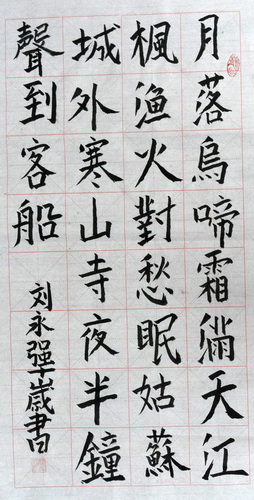 月落烏啼霜滿天江
楓漁火對愁眠姑蘇
城外寒山寺夜半鐘
聲到客船
刘永强十歲書